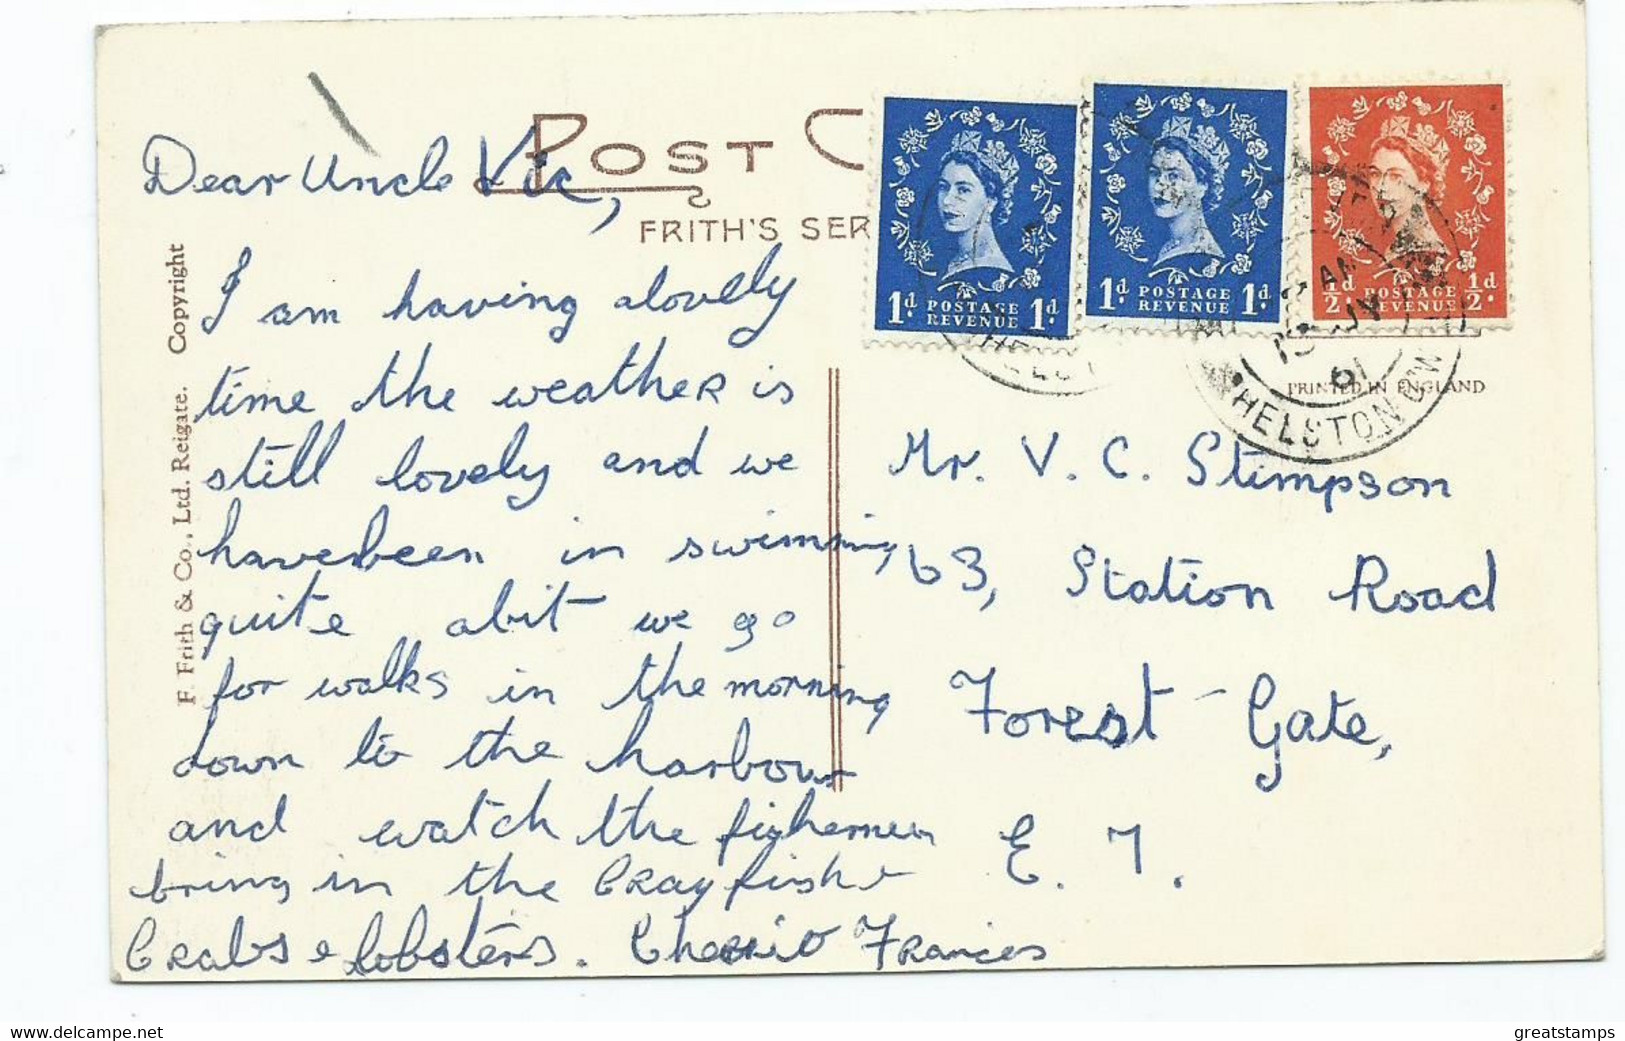 POST C
FRITH'S SER
F. Frith & Co., Ltd. Reigate. Copyright
1d POSTAGE REVENUE 1d
1d POSTAGE REVENUE 1d.
1/2d POSTAGE REVENUE 1/2d.
HELSTON
61
PRINTED IN ENGLAND
Dear Uncle Vic,
I am having alovely
time the weather is
still lovely and we
have been in swimming
quite abit we go
for walks in the morning
down to the harbour
and watch the fishermen
bring in the Crayfish
Crabs & lobsters. Cherrio Frances
Mr. V. C. Stimpson
63, Station Road
Forest-Gate,
E. 7.
delcampe.net
greatstamps